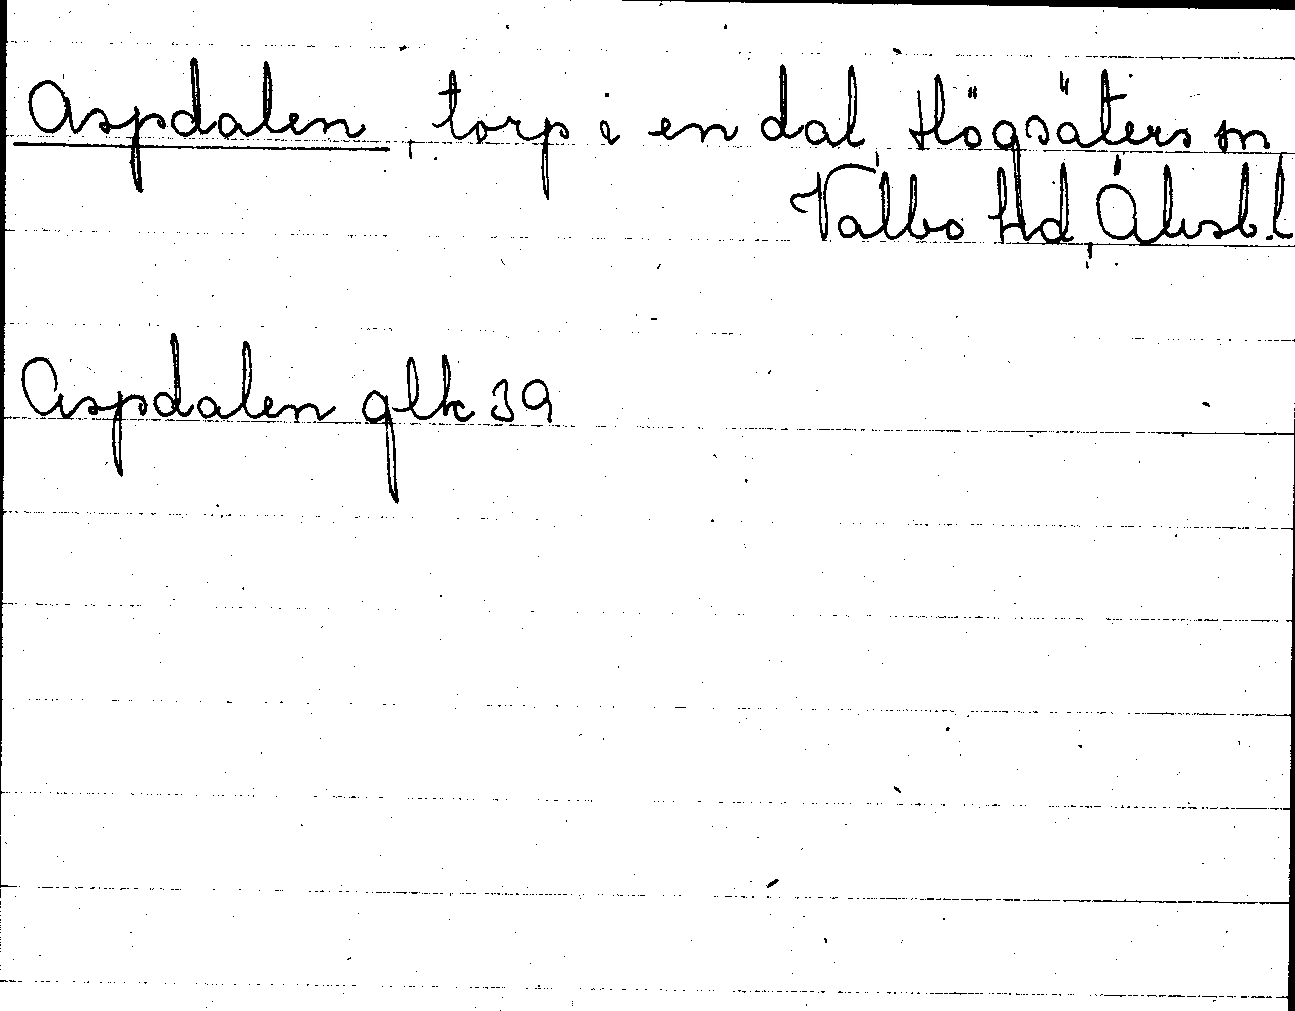 Aspdalen, torp i en dal, Högsäters sn,
Valbo Hd, Älvsb.l
Aspdalen glk 39